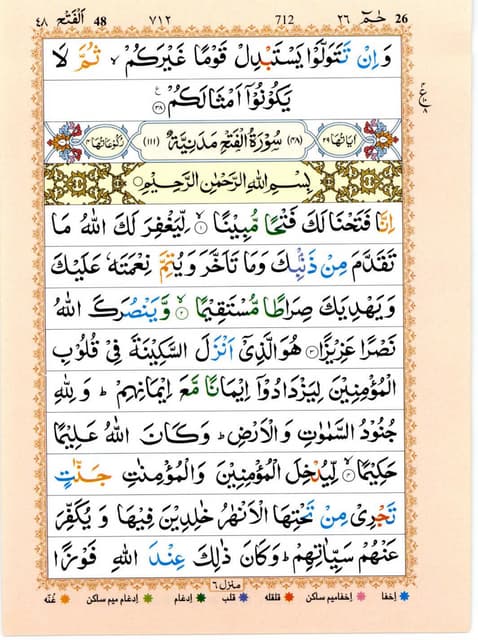 ٤٨ الفتح 48 ٧١٢ 712 حٰمٓ ٢٦ 26
وَاِنْ تَتَوَلَّوْا يَسْتَبْدِلْ قَوْمًا غَيْرَكُمْ ۙ ثُمَّ لَا
يَكُوْنُوْٓا اَمْثَالَكُمْ ﴿٣٨﴾
ع
٨
اٰيَاتُهَا ٢٩ (٤٨) سُوْرَةُ الْفَتْحِ مَدَنِيَّةٌ (١١١) رُكُوْعَاتُهَا ٤
بِسْمِ اللّٰهِ الرَّحْمٰنِ الرَّحِيْمِ
اِنَّا فَتَحْنَا لَكَ فَتْحًا مُّبِيْنًا ﴿١﴾ لِّيَغْفِرَ لَكَ اللّٰهُ مَا
تَقَدَّمَ مِنْ ذَنْۢبِكَ وَمَا تَاَخَّرَ وَيُتِمَّ نِعْمَتَهٗ عَلَيْكَ
وَيَهْدِيَكَ صِرَاطًا مُّسْتَقِيْمًا ﴿٢﴾ وَّيَنْصُرَكَ اللّٰهُ
نَصْرًا عَزِيْزًا ﴿٣﴾ هُوَ الَّذِيْٓ اَنْزَلَ السَّكِيْنَةَ فِيْ قُلُوْبِ
الْمُؤْمِنِيْنَ لِيَزْدَادُوْٓا اِيْمَانًا مَّعَ اِيْمَانِهِمْ ؕ وَلِلّٰهِ
جُنُوْدُ السَّمٰوٰتِ وَالْاَرْضِ ؕ وَكَانَ اللّٰهُ عَلِيْمًا
حَكِيْمًا ﴿٤﴾ لِّيُدْخِلَ الْمُؤْمِنِيْنَ وَالْمُؤْمِنٰتِ جَنّٰتٍ
تَجْرِيْ مِنْ تَحْتِهَا الْاَنْهٰرُ خٰلِدِيْنَ فِيْهَا وَيُكَفِّرَ
عَنْهُمْ سَيِّاٰتِهِمْ ؕ وَكَانَ ذٰلِكَ عِنْدَ اللّٰهِ فَوْزًا
منزل ٦
اخفا اخفامیم ساکن قلقله قلب ادغام ادغام میم ساکن غُنّه